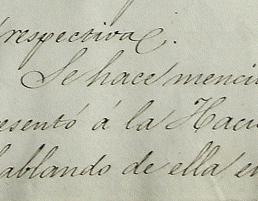 respectiva.
Se hace menci
esentó á la Haci
hablando de ella en